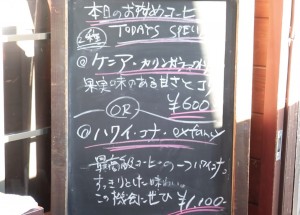 本日のお強めコーヒー
TODAY'S SPECI
@ケニア・カリンガ
果実味のある甘さとコ
¥600
OR
@ハワイ・コナ・extrafancy
最高級コーヒーの一つハワイコナ。
すっきりとした味わい。
この機会にぜひ
¥1,100-